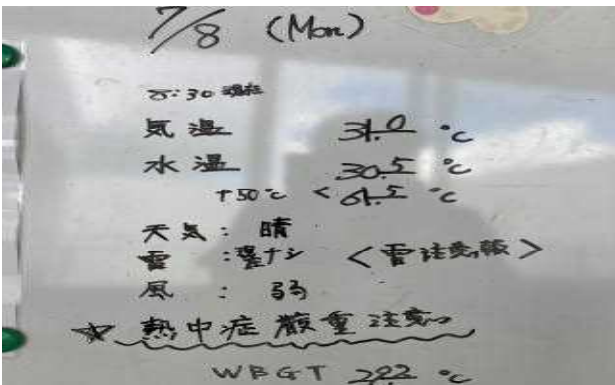 7/8 (Mon)
現在
気温 31.0 ℃
水温 30.5 ℃
+50℃ < 61.5 ℃
天気: 晴
雷 : <雷注意報>
風 : 弱
☆ 熱中症厳重注意
WBGT ℃